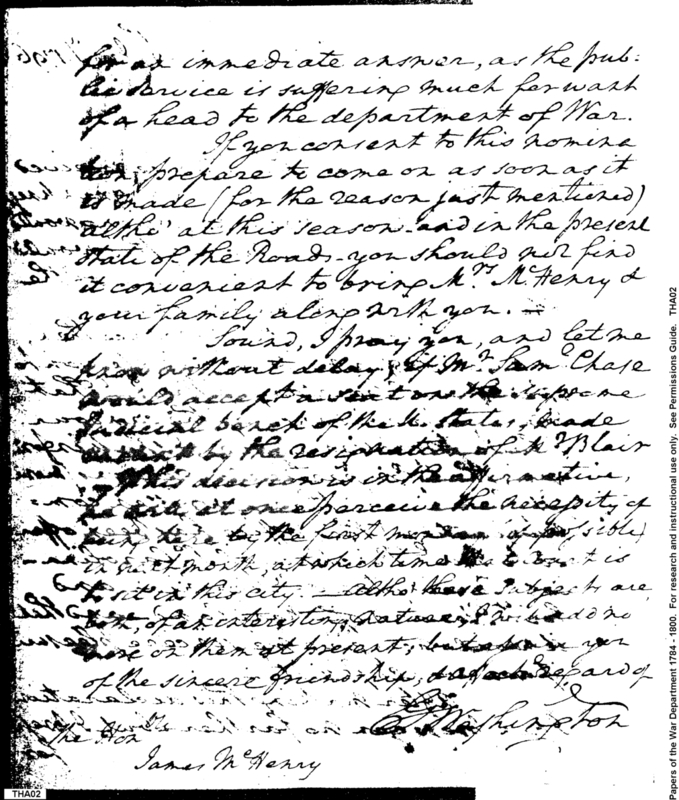 for an immediate answer, as the pub:
lic service is suffering much for want
of a head to the department of War.
If you consent to this nomina
tion, prepare to come on as soon as it
is made (for the reason just mentioned)
altho' at this season and in the present
state of the Roads you should not find
it convenient to bring Mrs McHenry &
your family along with you.
Sound, I pray you, and let me
know without delay, if Mr Saml Chase
would accept a seat on the Supreme
Judicial bench of the U. States, made
vacant by the resignation of Mr Blair
If his decision is in the affirmative,
he will at once perceive the necessity of
being here by the first monday (if possible)
in next month, at which time that Court is
to sit in this city. Altho these subjects are
both, of an interesting nature, I shall add no
more on them at present; but assure you
of the sincere friendship, & regard of
Go: Washington
The Honble
James McHenry
THA02
Papers of the War Department 1784 - 1800. For research and instructional use only. See Permissions Guide. THA02